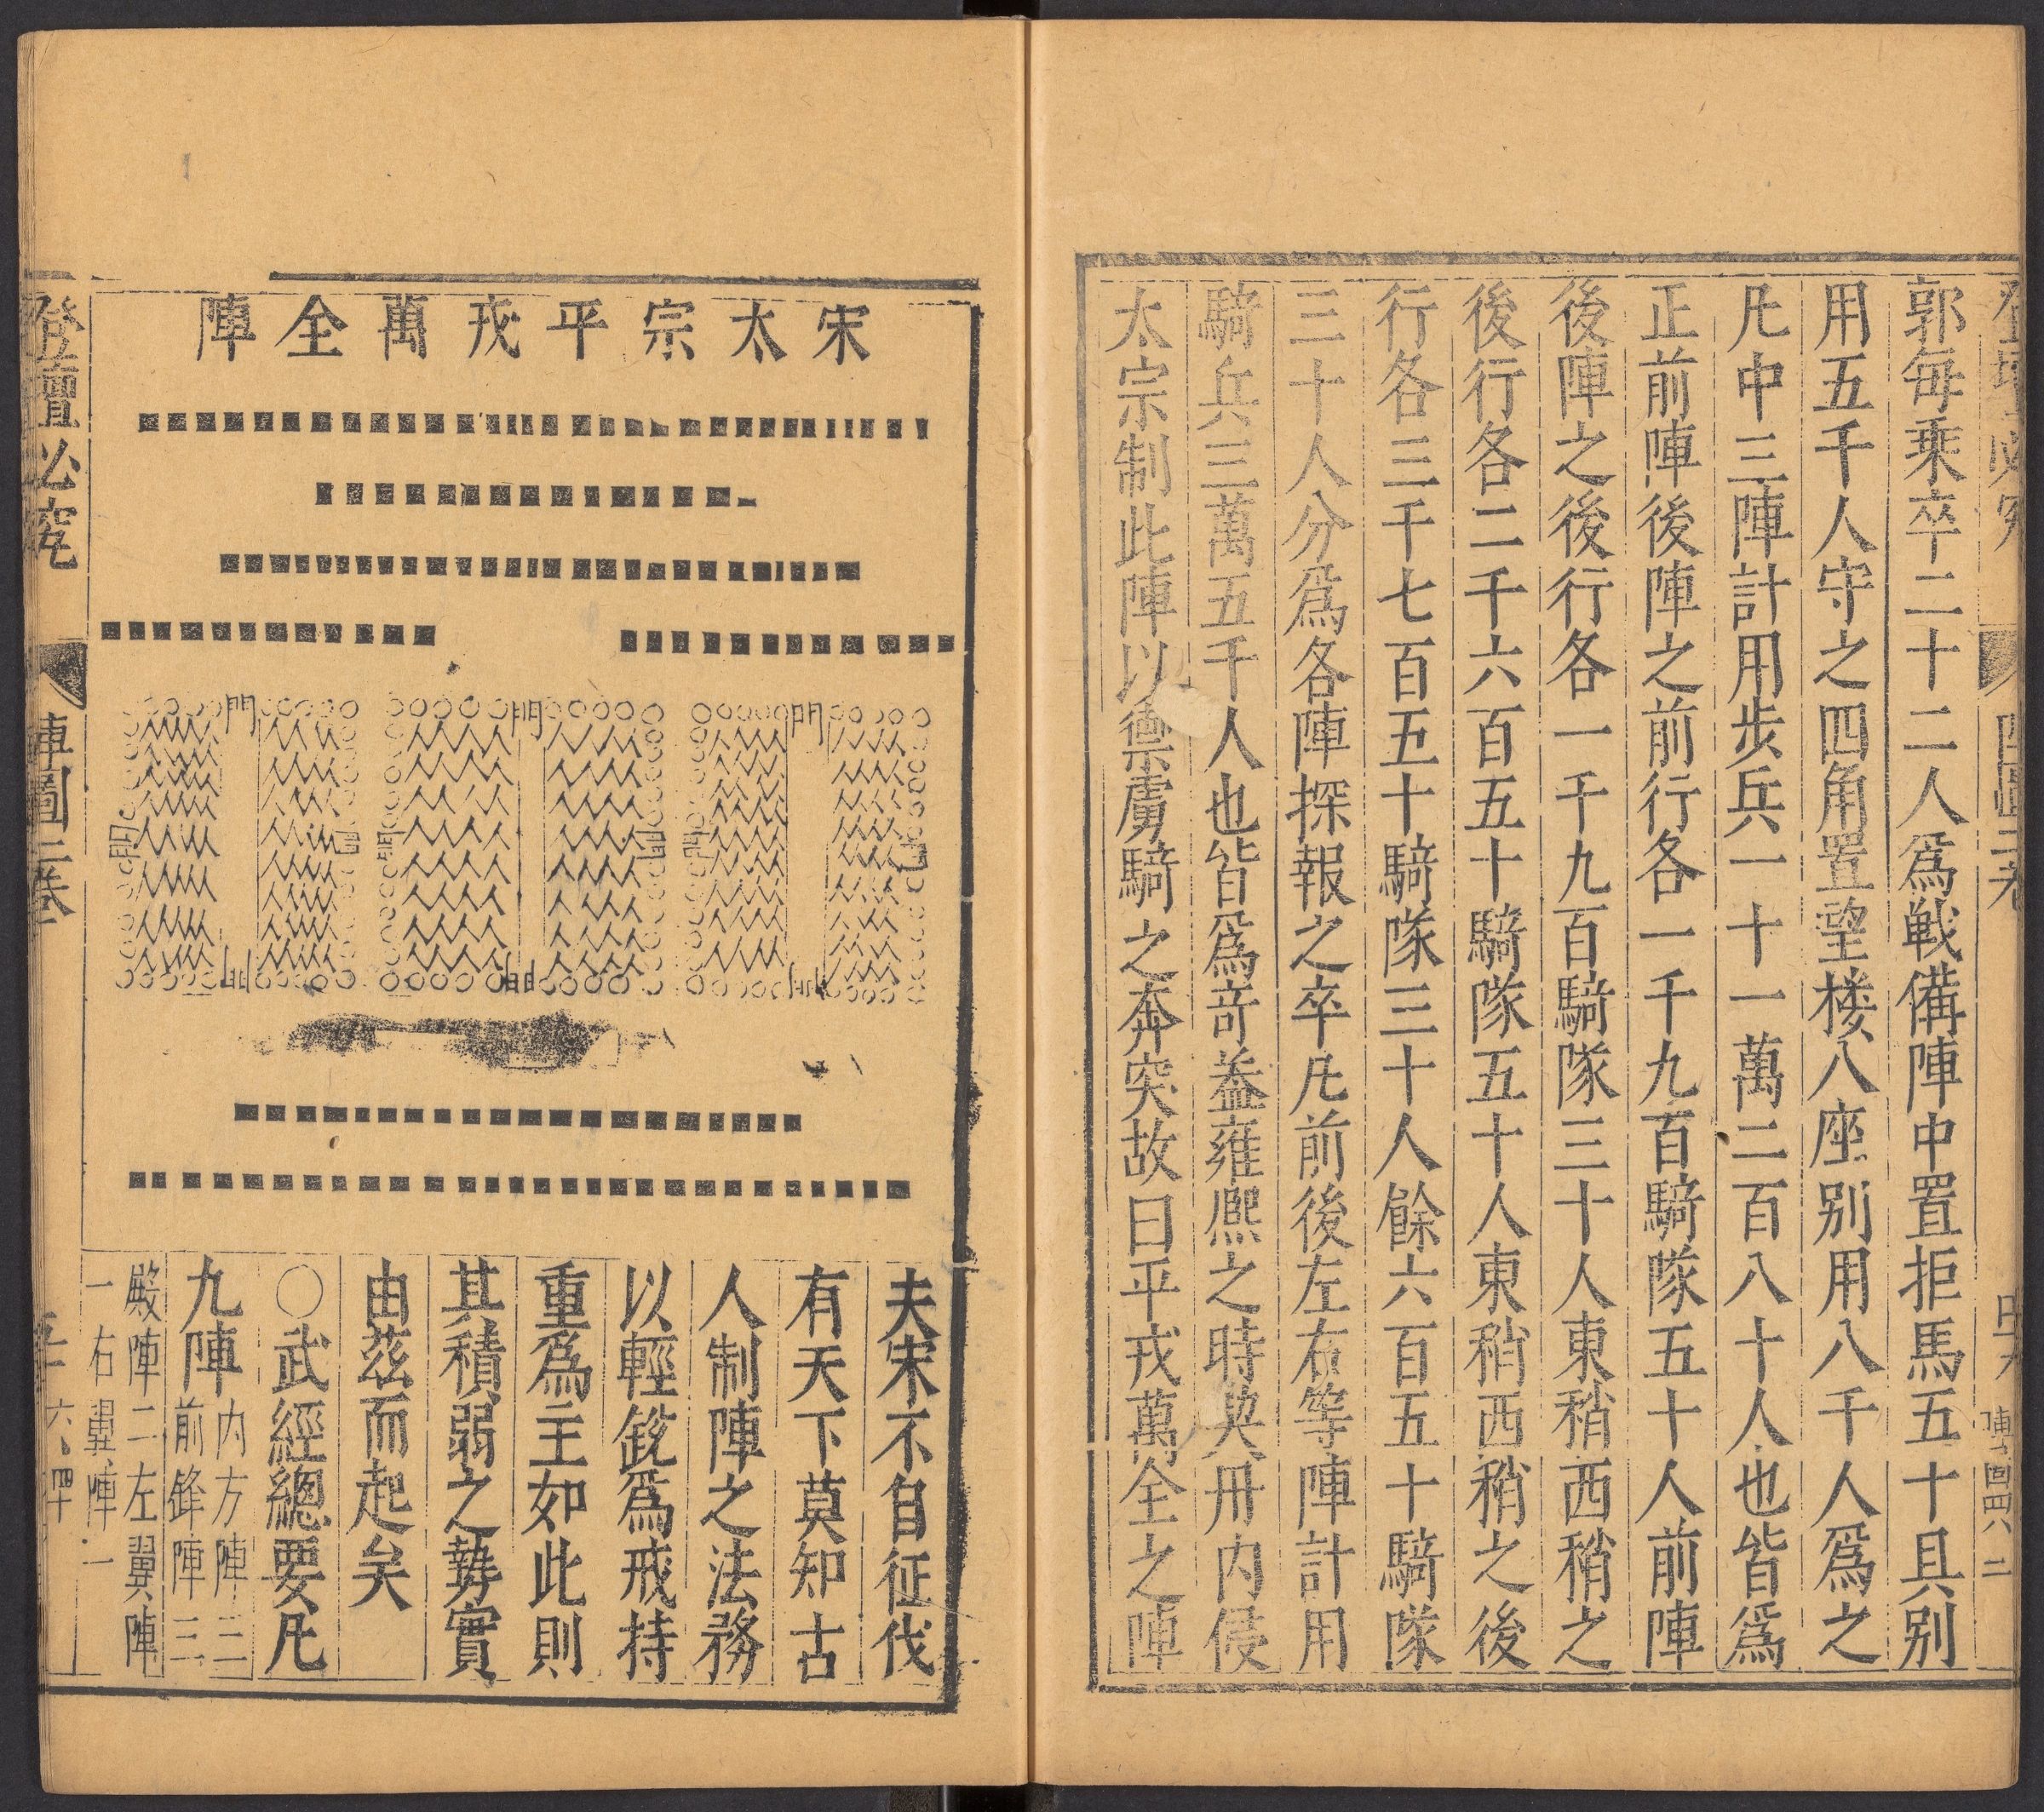 郭每乘卒二十二人爲戦備陣中置拒馬五十具别
用五千人守之四角置望楼八座别用八千人爲之
凡中三陣計用步兵一十一萬二百八十人也皆爲
正前陣後陣之前行各一千九百騎隊五十人前陣
後陣之後行各一千九百騎隊三十人東稍西稍之
後行各二千六百五十騎隊五十人東稍西稍之後
行各三千七百五十騎隊三十人餘六百五十騎隊
三十人分爲各陣探報之卒凡前後左右等陣計用
騎兵三萬五千人也皆爲竒葢雍熈之時契丹内侵
太宗制此陣以禦虜騎之奔突故曰平戎萬全之陣
宋太宗平戎萬全陣
門
門
門
門
門
門
夫宋不自征伐
有天下莫知古
人制陣之法務
以輕鋭爲戒持
重爲主如此則
其積弱之勢實
由茲而起矣
○武經總要凡
九陣内方陣三
前鋒陣二
殿陣二左翼陣
一右翼陣一
登壇必究
陣圖二卷
六四